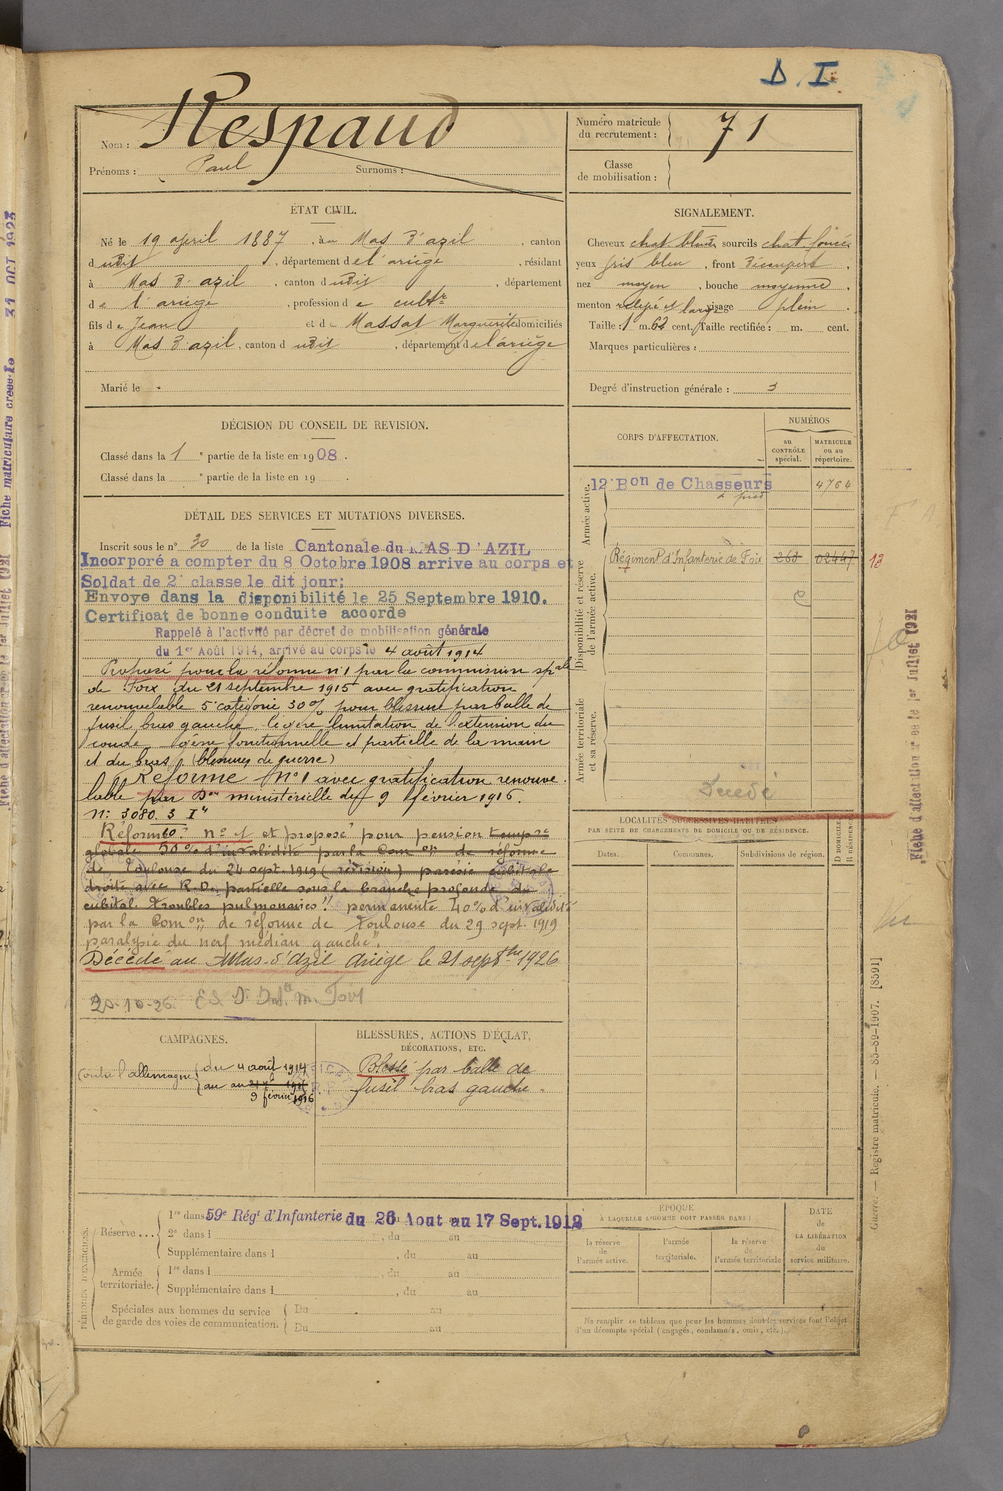 D. I.
Nom : Respaud
Prénoms : Paul Surnoms :
Numéro matricule du recrutement : 71
Classe de mobilisation :
ÉTAT CIVIL.
Né le 19 april 1887, à Mas d'azil, canton
dudit, département de l'ariège, résidant
à Mas d'azil, canton dudit, département
de l'ariège, profession de cultr
fils de Jean et de Massat Marguerite domiciliés
à Mas d'azil, canton dudit, département de l'ariège
Marié le
SIGNALEMENT.
Cheveux chat blonds sourcils chat foncés
yeux gris bleu, front découvert,
nez moyen, bouche moyenne,
menton relevé et large visage plein.
Taille : 1 m. 62 cent. Taille rectifiée : m. cent.
Marques particulières :
Degré d'instruction générale : 3
DÉCISION DU CONSEIL DE REVISION.
Classé dans la 1e partie de la liste en 1908.
Classé dans la e partie de la liste en 19 .
CORPS D'AFFECTATION.
NUMÉROS
au CONTRÔLE spécial.
MATRICULE ou au répertoire.
Armée active.
12 Bon de Chasseurs à pied 4764
Disponibilité et réserve de l'armée active.
Régiment d'Infanterie de Foix 263 02447 12
Armée territoriale et sa réserve.
Décédé
DÉTAIL DES SERVICES ET MUTATIONS DIVERSES.
Inscrit sous le n° 30 de la liste Cantonale du MAS D'AZIL
Incorporé a compter du 8 Octobre 1908 arrive au corps et
Soldat de 2e classe le dit jour;
Envoye dans la disponibilité le 25 Septembre 1910.
Certificat de bonne conduite accorde
Rappelé à l'activité par décret de mobilisation générale
du 1er Août 1914, arrivé au corps le 4 août 1914
Proposé pour la réforme n° 1 par la commission spale
de Foix du 21 septembre 1915 avec gratification
renouvelable 5e catégorie 30% pour blessure par balle de
fusil, bras gauche, légère limitation de l'extension du
coude gêne fonctionnelle et partielle de la main
et du bras. (blessures de guerre)
Réformé n° 1 avec gratification renouve-
lable par Don ministérielle du 9 février 1916.
N: 3080. 3 Ir
Réformé n° 1 et proposé pour pension tempre
globale 50% d'invalidité par la Com on de réforme
de Toulouse du 24 sept. 1919 (révision) parésie cubitale
droite avec R.D. partielle sous la branche profonde du
cubital troubles pulmonaires" permanente 40% d'invalidité
par la Com on de réforme de Toulouse du 29 sept. 1919
paralysie du nerf médian gauche".
Décédé au Mas-d'Azil Ariège le 21 septbre 1926
20-10-26.
LOCALITÉS SUCCESSIVES HABITÉES
PAR SUITE DE CHANGEMENTS DE DOMICILE OU DE RÉSIDENCE.
Dates. Communes. Subdivisions de région. D DOMICILE R RÉSIDENCE
CAMPAGNES.
Contre l'allemagne du 4 août 1914
au 9 février 1916
BLESSURES, ACTIONS D'ÉCLAT,
DÉCORATIONS, ETC.
Blessé par balle de
fusil bras gauche.
PÉRIODES D'EXERCICES.
Réserve ...
1re dans 59e Régt d'Infanterie du 26 Aout au 17 Sept. 1912
2e dans l , du au
Supplémentaire dans l , du au
Armée territoriale.
1re dans l , du au
Supplémentaire dans l , du au
Spéciales aux hommes du service de garde des voies de communication.
Du au
Du au
ÉPOQUE
À LAQUELLE L'HOMME DOIT PASSER DANS :
la réserve de l'armée active.
l'armée territoriale.
la réserve de l'armée territoriale
DATE de LA LIBÉRATION du service militaire.
Ne remplir ce tableau que pour les hommes dont les services font l'objet
d'un décompte spécial (engagés, condamnés, omis, etc.).
Guerre. — Registre matricule. — 85-89-1907. [8591]
Fiche d'affectation créée le 1er Juillet 1921
Fiche matriculaire créée le 31 OCT 1923